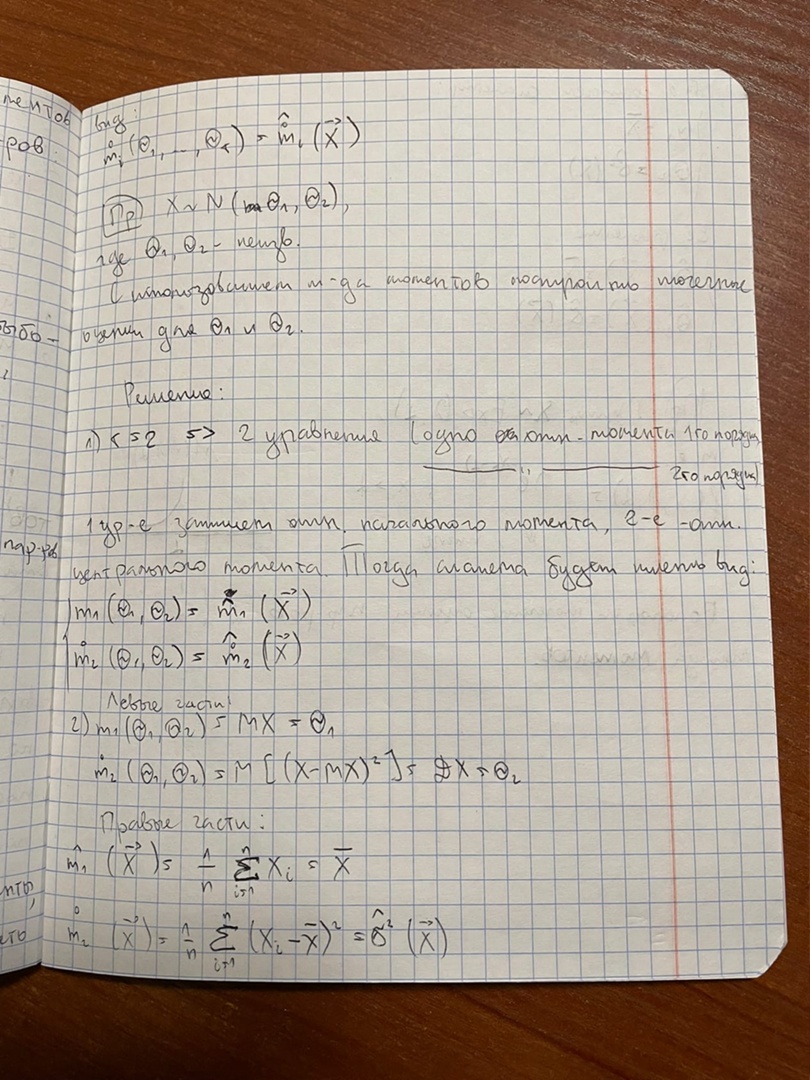 ментов
ров.
выбо-
пар-ров
нты,
вид:
m̊ᵢ(Θ₁, ..., Θᵣ) = m̊̂ᵢ(X⃗)
Пр X ~ N(Θ₁, Θ₂),
где Θ₁, Θ₂ - неизв.
С использованием м-да моментов построить точечные
оценки для Θ₁ и Θ₂.
Решение:
1) r = 2 => 2 уравнения (одно отн. момента 1го порядка,
—— " —— 2го порядка)
1 ур-е запишем отн. начального момента, 2-е - отн.
центрального момента. Тогда система будет иметь вид:
m₁(Θ₁, Θ₂) = m̂₁(X⃗)
m̊₂(Θ₁, Θ₂) = m̊̂₂(X⃗)
Левые части:
2) m₁(Θ₁, Θ₂) = MX = Θ₁
m̊₂(Θ₁, Θ₂) = M[(X-MX)²] = DX = Θ₂
Правые части:
m̂₁(X⃗) = 1/n ∑ᵢ₌₁ⁿ Xᵢ = X̅
m̊₂(X⃗) = 1/n ∑ᵢ₌₁ⁿ (Xᵢ - X̅)² = σ̂²(X⃗)